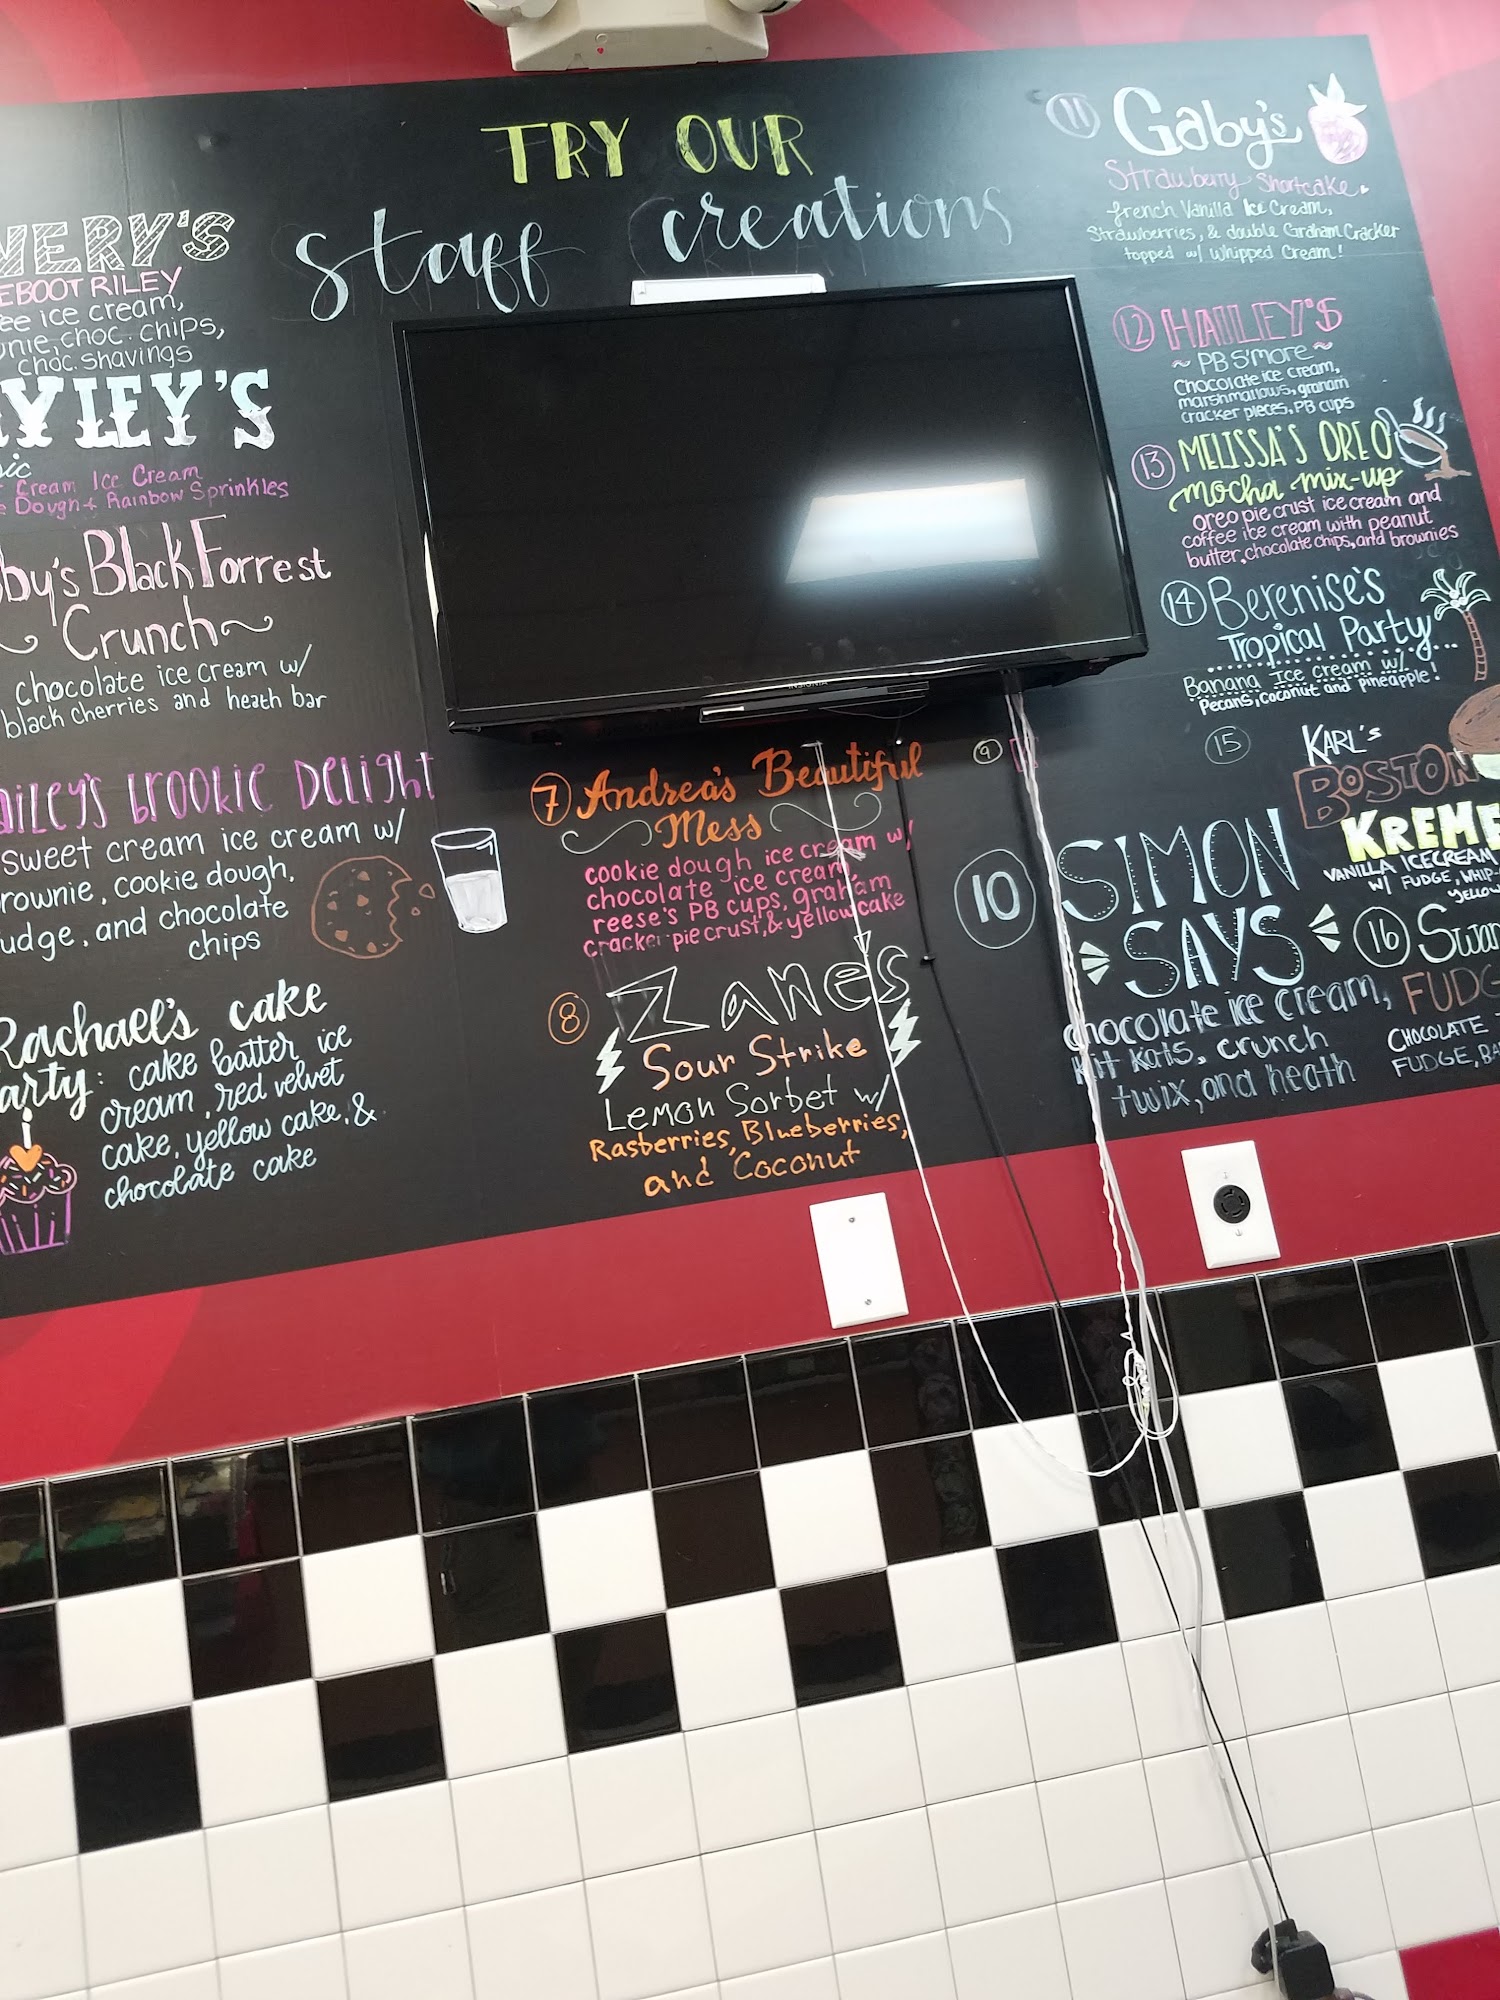 TRY OUR
staff creations
REBOOT RILEY
ice cream,
choc. chips,
choc. shavings
Cream Ice Cream
Dough + Rainbow Sprinkles
Black Forrest
~ Crunch ~
chocolate ice cream w/
black cherries and heath bar
brookie Delight
sweet cream ice cream w/
cookie dough,
and chocolate
chips
Rachael's cake
cake batter ice
cream, red velvet
cake, yellow cake, &
chocolate cake
7 Andrea's Beautiful
Mess
cookie dough ice cream w/
chocolate ice cream,
reese's PB cups, graham
cracker pie crust, & yellow cake
8 Zane's
Sour Strike
Lemon Sorbet w/
Rasberries, Blueberries,
and Coconut
INSIGNIA
9
10 SIMON
SAYS
chocolate ice cream,
kit kats, crunch
twix, and heath
11 Gaby's
Strawberry Shortcake
french Vanilla Ice Cream,
Strawberries, & double Graham Cracker
topped w/ Whipped Cream!
12 HAILEY'S
~ PB S'MORE ~
Chocolate ice cream,
marshmallows, graham
cracker pieces, PB cups
13 MELISSA'S OREO
mocha mix-up
oreo pie crust ice cream and
coffee ice cream with peanut
butter, chocolate chips, and brownies
14 Berenise's
Tropical Party...
Banana Ice cream w/
Pecans, coconut and pineapple!
15 KARL'S
BOSTON
KREME
VANILLA ICECREAM
W/ FUDGE, WHIP-
yellow
16
CHOCOLATE
FUDGE,